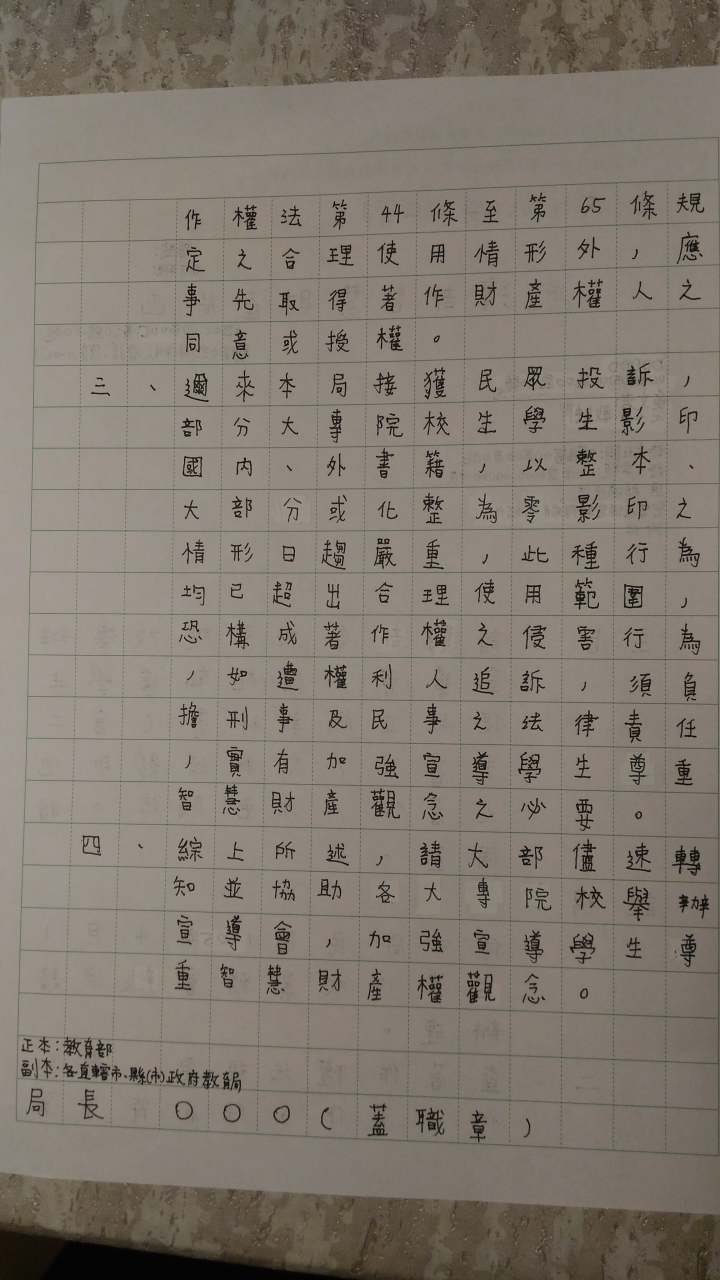 作權法第44條至第65條規
定之合理使用情形外，應
事先取得著作財產權人之
同意或授權。
三、邇來本局接獲民眾投訴，
部分大專院校生學生影印
國內、外書籍，以整本、
大部分或化整為零影印之
情形日趨嚴重，此種行為
均已超出合理使用範圍，
恐構成著作權之侵害行為
，如遭權利人追訴，須負
擔刑事及民事之法律責任
，實有加強宣導學生尊重
智慧財產觀念之必要。
四、綜上所述，請大部儘速轉
知並協助各大專院校舉辦
宣導會，加強宣導學生尊
重智慧財產權觀念。
正本：教育部
副本：各直轄市、縣(市)政府教育局
局長 ○○○（蓋職章）